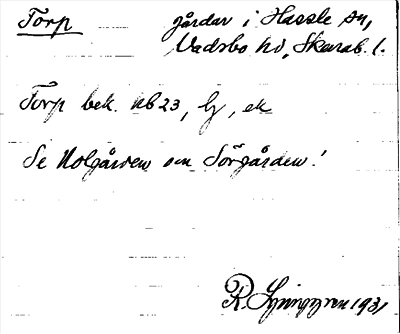 Torp gårdar i Hassle sn,
Vadsbo hd, Skarab. l.
Torp bek. Ab 23, Lj, ek
Se Nolgården om Sörgården!
R. Ljunggren 1931